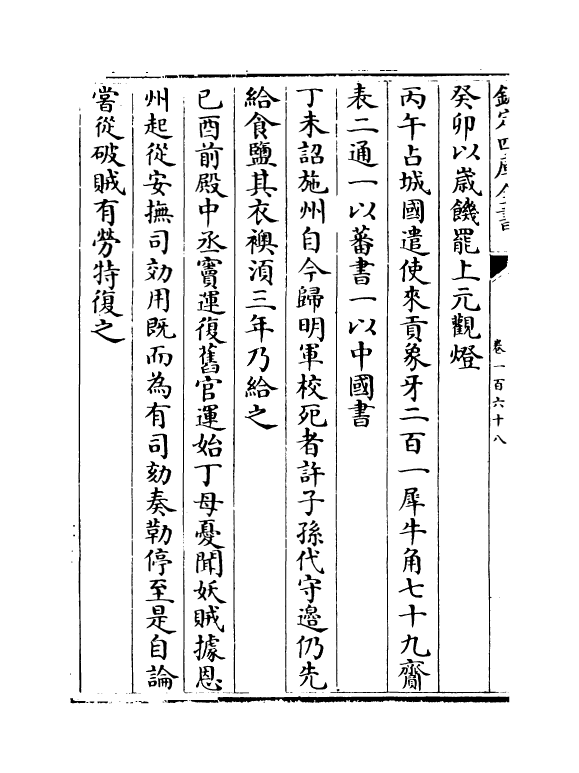 欽定四庫全書
卷一百六十八
癸卯以歲饑罷上元觀燈
丙午占城國遣使來貢象牙二百一犀牛角七十九齎
表二通一以蕃書一以中國書
丁未詔施州自今歸明軍校死者許子孫代守邊仍先
給食鹽其衣襖湏三年乃給之
已酉前殿中丞竇運復舊官運始丁母憂聞妖賊據恩
州起從安撫司効用既而為有司劾奏勒停至是自論
嘗從破賊有勞特復之